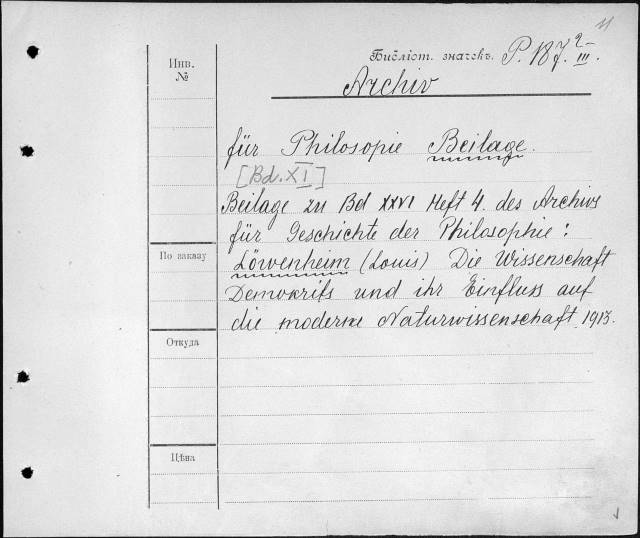 11
Инв.
№
Библіот. значекъ. P. 187. 2- III.
Archiv
für Philosopie Beilage.
[Bd. XI]
Beilage zu Bd XXVI Heft 4. des Archivs
für Geschichte der Philosophie:
По заказу
Löwenheim (Louis) Die Wissenschaft
Demokrits und ihr Einfluss auf
die moderne Naturwissenschaft. 1913.
Откуда
Цѣна